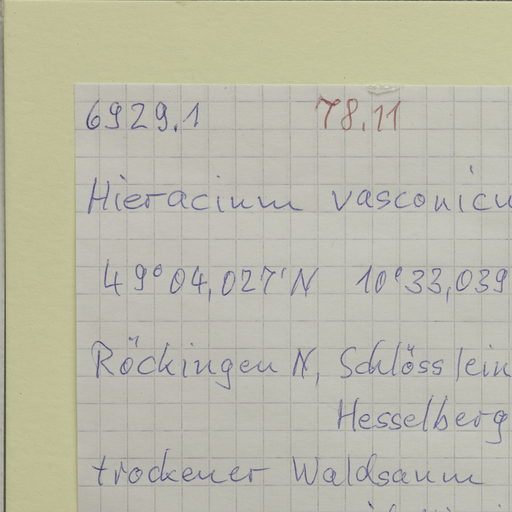 6929.1 78.11
Hieracium vasconicu
49°04,027'N 10°33,039
Röckingen N, Schlösslein
Hesselberg
trockener Waldsaum